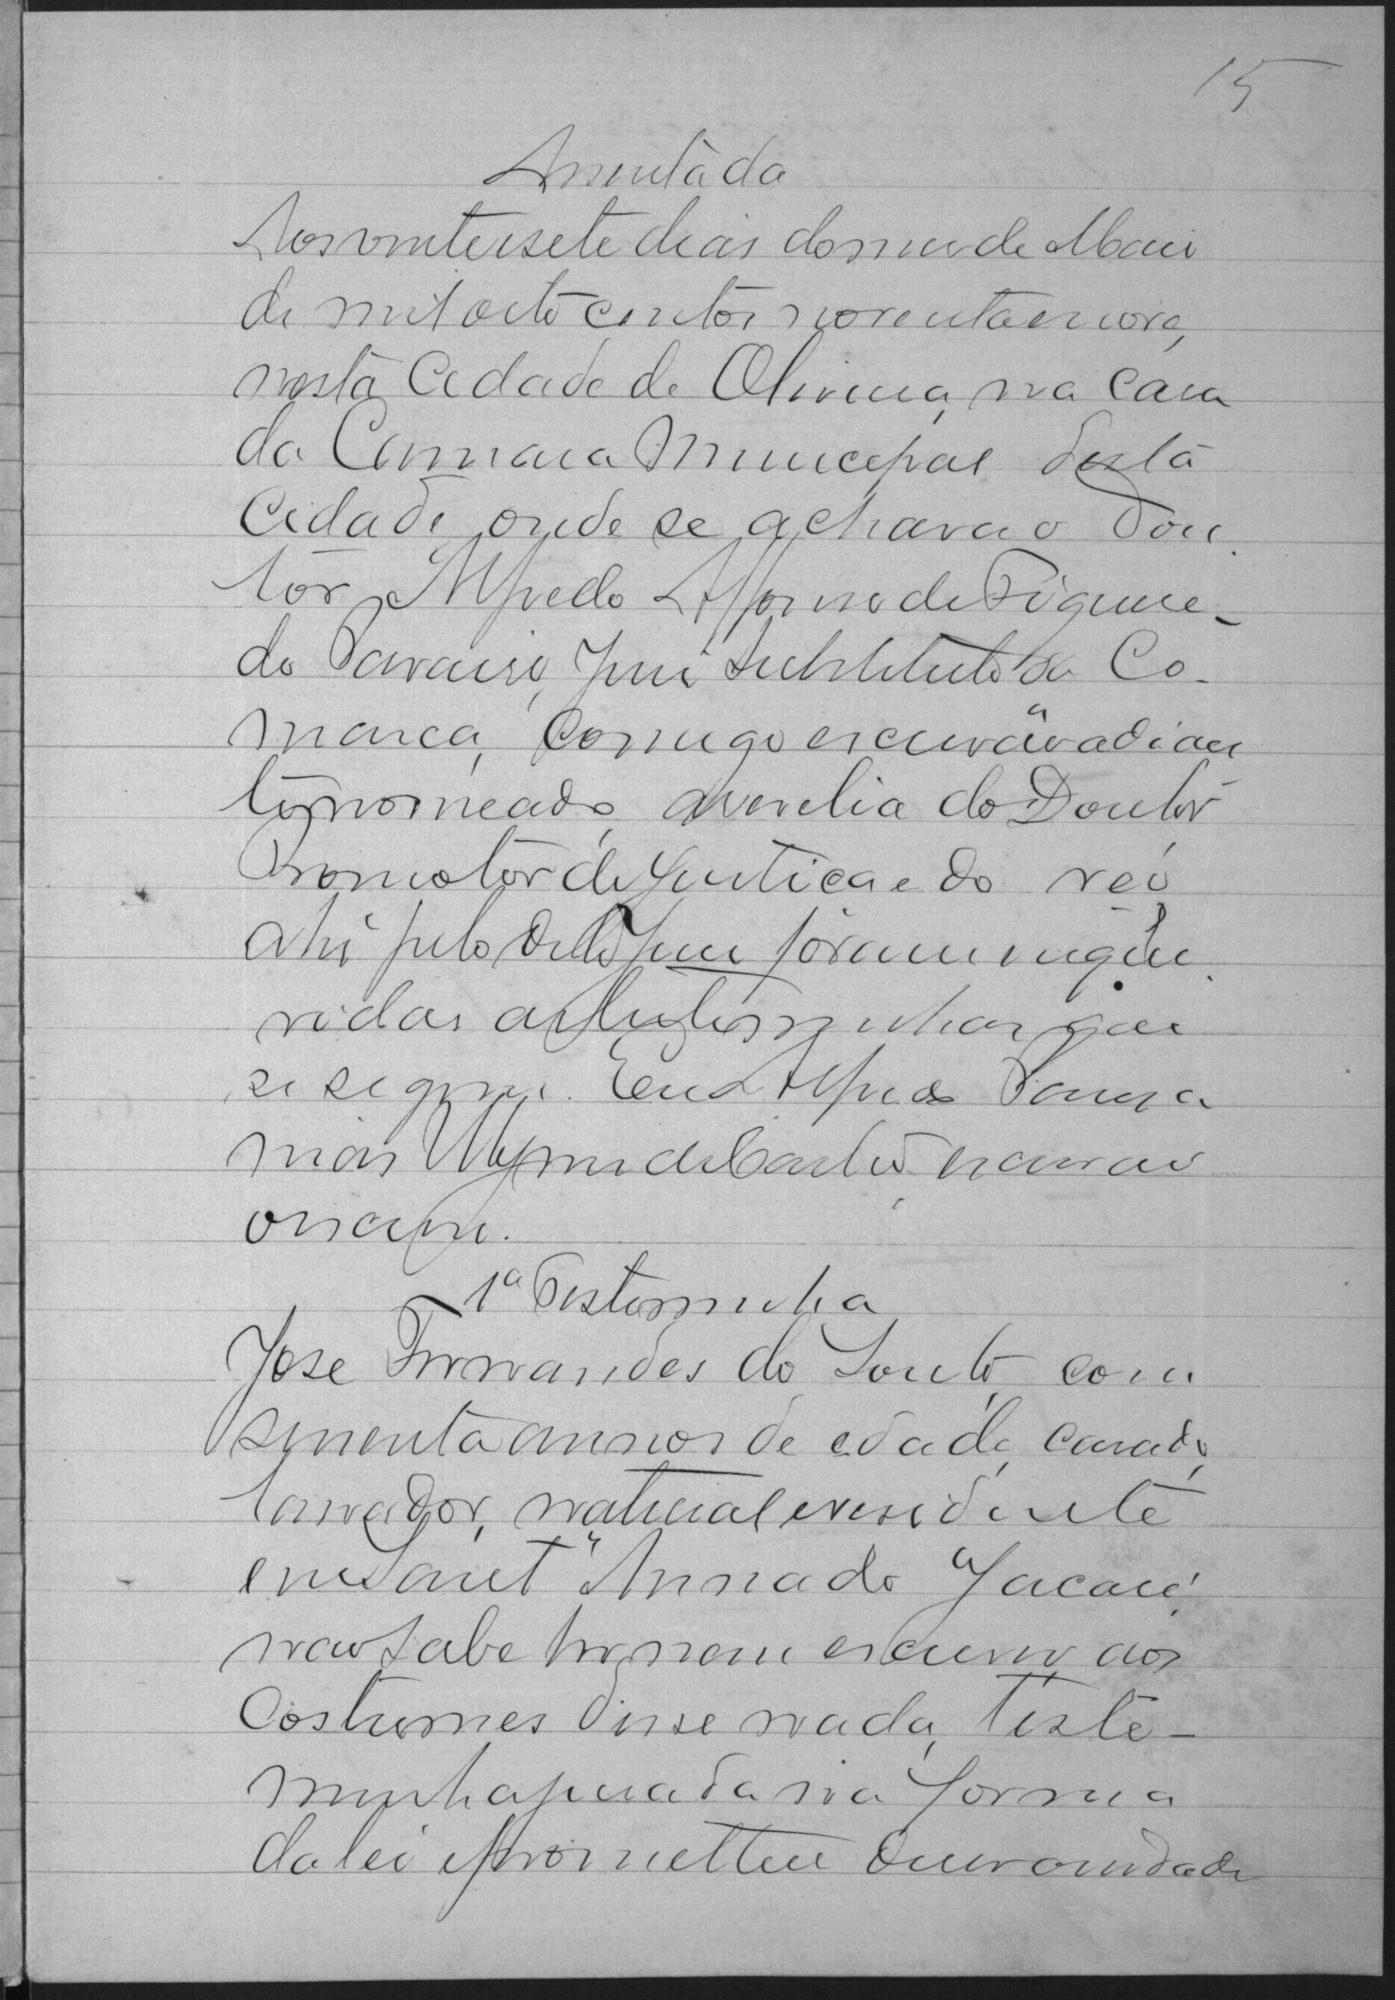 15
Assentada
Aos vinte e sete dias do mez de Maio
de mil oito centos noventa e nove,
nesta Cidade de Oliveira, na casa
da Camara Municipal desta
Cidade, onde se achava o Dou
tor Alfredo Affonso de Figueire-
do Paraiso, Juiz Substituto da Co-
marca, comigo escrivão adian
te nomeado, a revelia do Doutor
Promotor de Justiça e do réo
ahi pelo dito Juiz foram inqui
ridas as testemunhas que
se seguem. Eu Alfredo
de Castro, escrivão
o escrevi.
1ª Testemunha
Jose Fernandes do Souto, com
secenta annos de edade, casado,
lavrador, natural e residente
em Sant'Anna do Jacaré,
não sabe ler nem escrever, aos
costumes disse nada, teste-
munha jurada na forma
da lei e prometteu diser a verdade